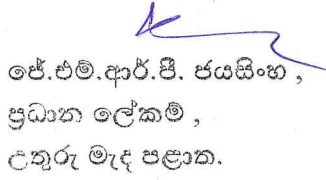 ජේ.එම්.ආර්.පී. ජයසිංහ ,
ප්‍රධාන ලේකම් ,
උතුරු මැද පළාත.